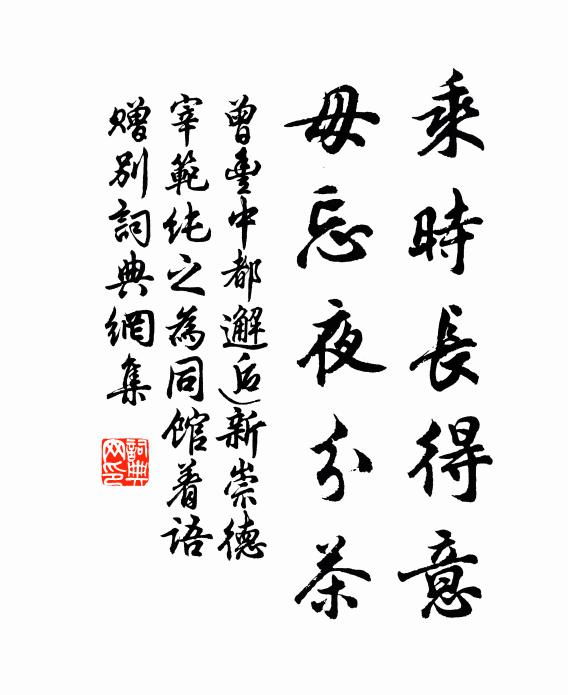 乘時長得意
毋忘夜分茶
曾豐中都邂逅新崇德
宰範純之為同館着語
贈別詞典網集
詞典网印